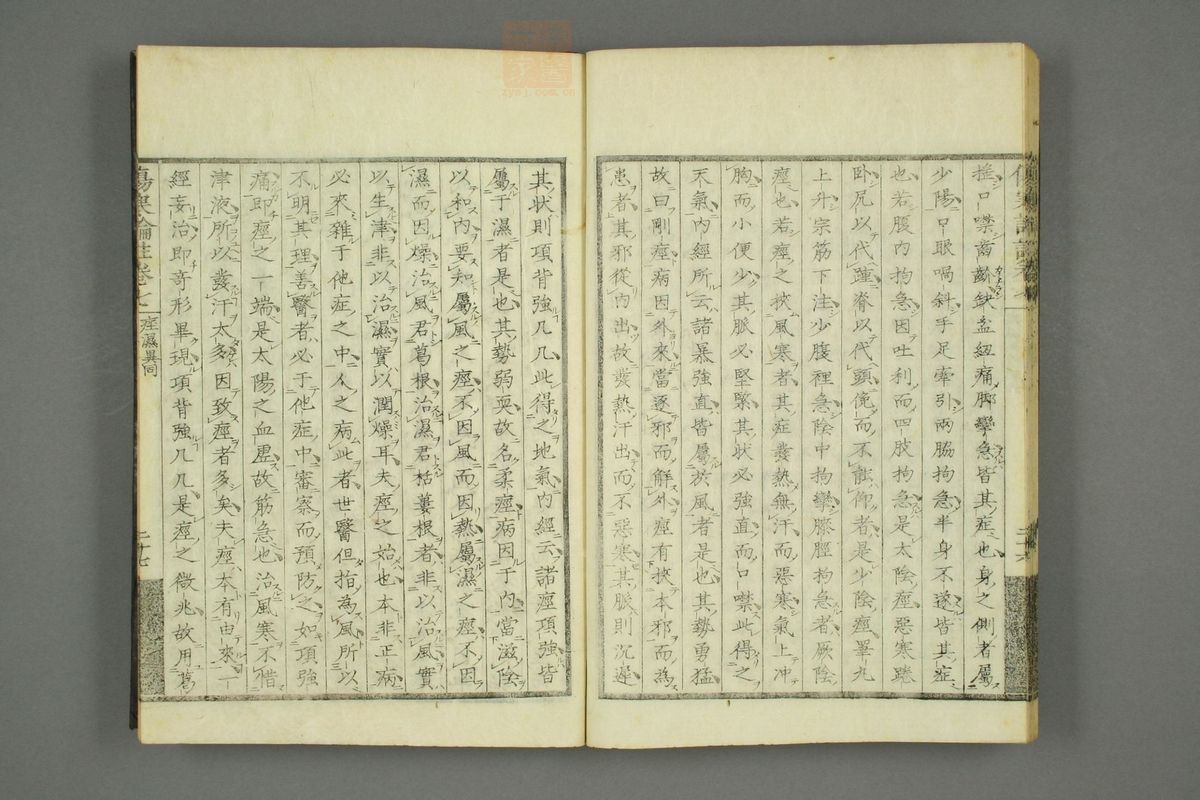 搖口噤齘齒缺盆紐痛脚攣急皆其症也身之側者屬
少陽口眼喎斜手足牽引兩脇拘急半身不遂皆其症
也若腹內拘急因吐利而四肢拘急是太陰痙惡寒踡
臥尻以代踵脊以代頭俛而不能仰者是少陰痙睪丸
上升宗筋下注少腹裡急陰中拘攣膝脛拘急者厥陰
痙也若痙之挾風寒者其症發熱無汗而惡寒氣上冲
胸而小便少其脈必堅緊其狀必強直而口噤此得之
天氣內經所云諸暴強直皆屬於風者是也其勢勇猛
故曰剛痙病因外來當逐邪而解外痙有挾本邪而為
患者其邪從內出故發熱汗出而不惡寒其脈則沉遲
其狀則項背強几几此得之地氣內經云諸痙項強皆
屬于濕者是也其勢弱耎故名柔痙病因于內當滋陰
以和內要知屬風之痙不因風而因熱屬濕之痙不因
濕而因燥治風君葛根治濕君栝蔞根者非以治風實
以生津非以治濕實以潤燥耳夫痙之始也本非正病
必來雜于他症之中人之病此者世醫但指為風所以
不明其理善醫者必于他症中審察而預防之如項強
痛即痙之一端是太陽之血虛故筋急也治風寒不惜
津液所以發汗太多因致痙者多矣夫痙本有由來一
經妄治即奇形畢現項背強几几是痙之微兆故用葛
傷寒論註卷七
痙濕異同
二十七
zysj.com.cn